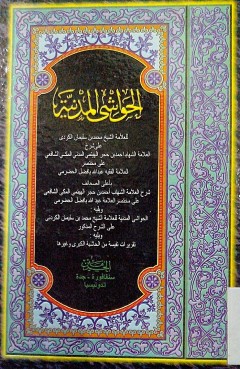 الحواشي المدنية
للعلامة الشيخ محمد بن سليمان الكردي
على شرح
العلامة الشهاب احمد بن حجر الهيتمي المدني المكي الشافعي
على مختصر
العلامة الفقيه عبد الله بافضل الحضرمي
بأعلى الصحائف
شرح العلامة الشهاب احمد بن حجر الهيتمي المكي الشافعي
على مختصر العلامة عبد الله بافضل الحضرمي
ويليه
الحواشي المدنية للعلامة الشيخ محمد بن سليمان الكردي
على الشرح المذكور
ويليه
تقريرات نفيسة من الحاشية الكبرى وغيرها
الحرمين
سنقافورة - جدة
اندونيسيا